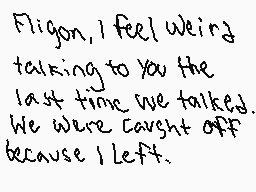 Fligon, I feel weird
talking to you the
last time we talked.
We were caught off
because I left.